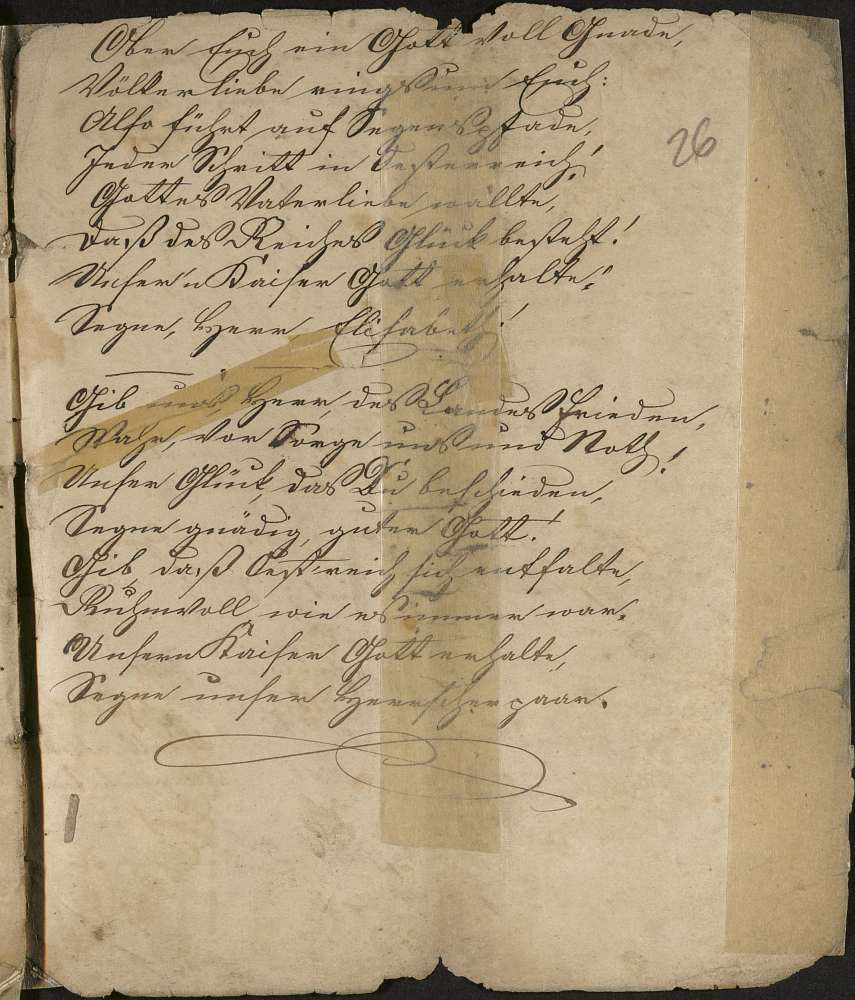 Ober Euch ein Gott voll Gnade,
Völkerliebe rings um Euch:
Also führt auf Segenspfade,
26
Jeder Schritt in Oesterreich!
Gottes Vaterliebe wallte,
Daß des Reiches Glück besteht!
Unser'n Kaiser Gott erhalte!
Segne, Herr Elisabeth!
Gib uns, Herr, des Landes Frieden,
Wahr', vor Sorge uns und Noth!
Unser Glück, das Du beschieden,
Segne gnädig, guter Gott!
Gib, daß Oest'reich sich entfalte,
Ruhmvoll wie es immer war.
Unsern Kaiser Gott erhalte,
Segne unser Herrscherpaar.